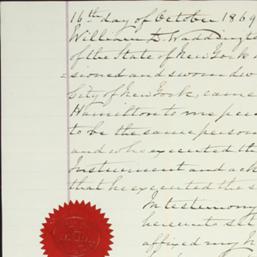 16th day of October 1869
William D Waddingt
of the State of New York
sioned and sworn dw
City of New York, came
Hamilton to me per
to be the same person
and who executed th
Instrument and ack
that he executed the s
In testimony
hereunto set
affixed my